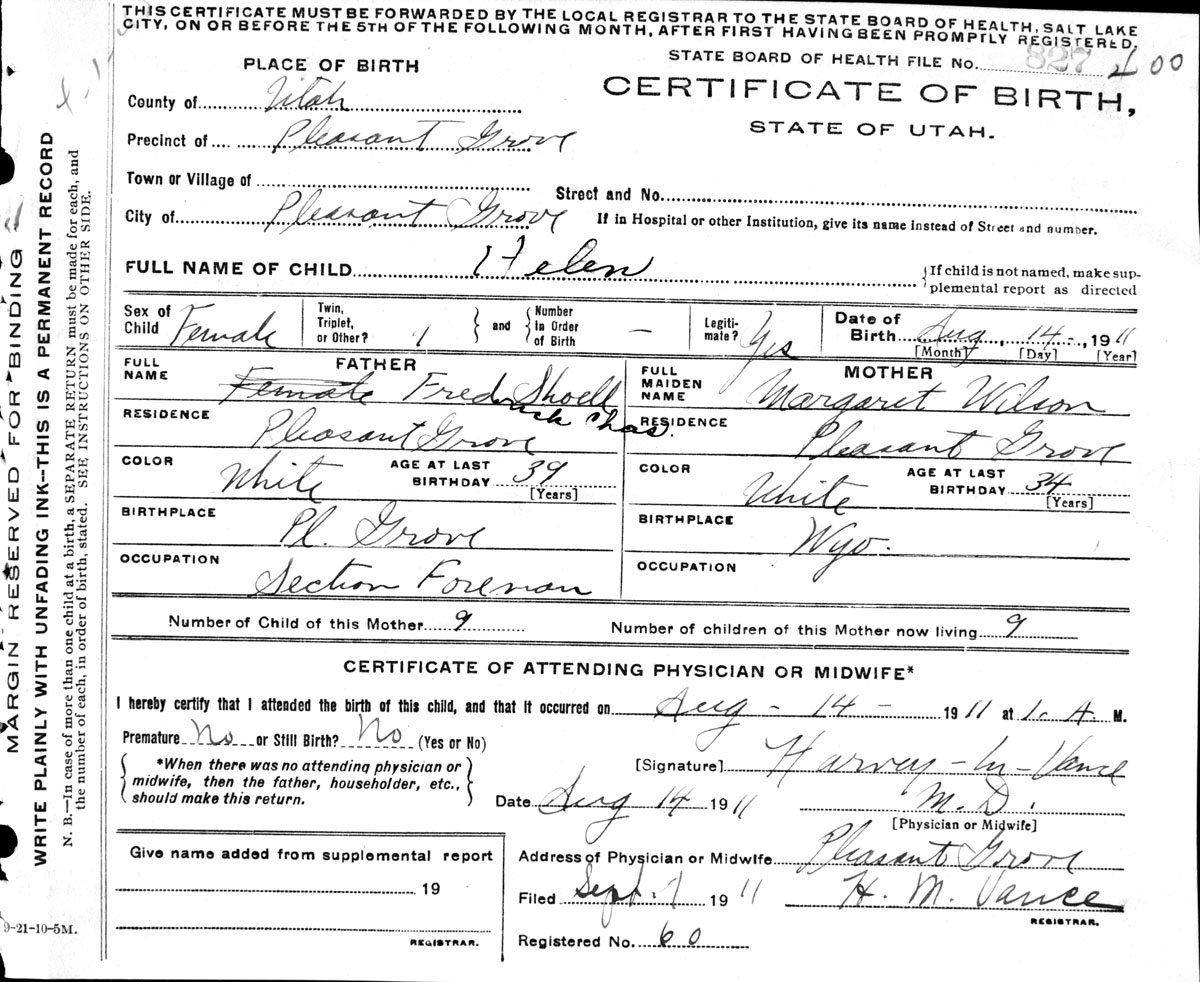 THIS CERTIFICATE MUST BE FORWARDED BY THE LOCAL REGISTRAR TO THE STATE BOARD OF HEALTH, SALT LAKE
CITY, ON OR BEFORE THE 5TH OF THE FOLLOWING MONTH, AFTER FIRST HAVING BEEN PROMPTLY REGISTERED.
STATE BOARD OF HEALTH FILE No. 827 400
PLACE OF BIRTH
CERTIFICATE OF BIRTH,
STATE OF UTAH.
County of Utah
Precinct of Pleasant Grove
Town or Village of
Street and No.
City of Pleasant Grove
If in Hospital or other Institution, give its name instead of Street and number.
FULL NAME OF CHILD Helen
If child is not named, make sup-
plemental report as directed
Sex of Child Female
Twin, Triplet, or Other? 1
and
Number In Order of Birth —
Legiti-mate? Yes
Date of Birth Aug, 14-, 1911
[Month] [Day] [Year]
FATHER
FULL NAME Female Fredrick Chas. Shoell
RESIDENCE Pleasant Grove
COLOR White
AGE AT LAST BIRTHDAY 39
[Years]
BIRTHPLACE Pl. Grove
OCCUPATION Section Foreman
MOTHER
FULL MAIDEN NAME Margaret Wilson
RESIDENCE Pleasant Grove
COLOR White
AGE AT LAST BIRTHDAY 34
[Years]
BIRTHPLACE Wyo.
OCCUPATION
Number of Child of this Mother 9
Number of children of this Mother now living 9
CERTIFICATE OF ATTENDING PHYSICIAN OR MIDWIFE*
I hereby certify that I attended the birth of this child, and that it occurred on Aug - 14 - 1911 at 1. A. M.
Premature No or Still Birth? No (Yes or No)
*When there was no attending physician or
midwife, then the father, householder, etc.,
should make this return.
[Signature] Harvey - M - Vance
Date Aug 14 1911
M. D.
[Physician or Midwife]
Address of Physician or Midwife Pleasant Grove
Filed Sept. 1 1911
H. M. Vance
REGISTRAR.
Registered No. 60
Give name added from supplemental report
19
REGISTRAR.
MARGIN RESERVED FOR BINDING
WRITE PLAINLY WITH UNFADING INK--THIS IS A PERMANENT RECORD
N. B.—In case of more than one child at a birth, a SEPARATE RETURN must be made for each, and
the number of each, in order of birth, stated. SEE INSTRUCTIONS ON OTHER SIDE.
9-21-10-5M.